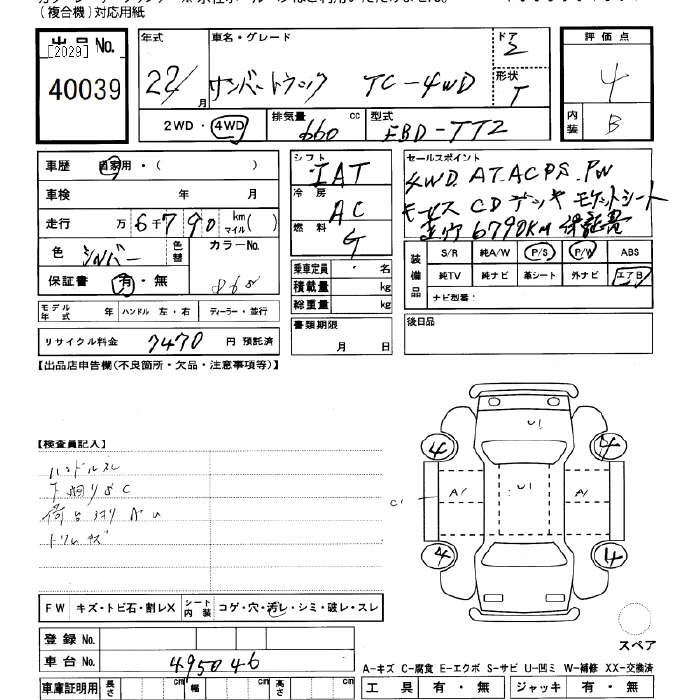 (複合機)対応用紙
出品No.
[2029]
40039
年式 22/ 月
車名・グレード サンバートラック TC-4WD
ドア 2
形状 T
2WD・4WD
排気量 660 cc
型式 EBD-TT2
評価点 4
内装 B
車歴 自家用・( )
車検 年 月
走行 万 6千790 km マイル( )
色 シルバー 色替 カラーNo.
保証書 有・無
モデル年式 年 ハンドル 左・右 ディーラー・並行
リサイクル料金 7470 円 預託済
シフト IAT
冷房 AC
燃料 G
乗車定員 ・ 名
積載量 kg
総重量 kg
書類期限
月 日
セールスポイント
4WD. AT. AC PS. PW
CD デッキ シート
6790KM 保証書
装備品 S/R 純A/W P/S P/W ABS
純TV 純ナビ 革シート 外ナビ エアB
ナビ型番:
後日品
【出品店申告欄(不良箇所・欠品・注意事項等)】
【検査員記入】
ハンドルスレ
U1
4 4
A1 U1 A1
C1
4 4
スペア
FW キズ・トビ石・割レX シート内装 コゲ・穴・汚レ・シミ・破レ・スレ
登録No.
車台No. 495046
A-キズ C-腐食 E-エクボ S-サビ U-凹ミ W-補修 XX-交換済
車庫証明用 長さ cm 幅 cm 高さ cm
工具 有・無 ジャッキ 有・無